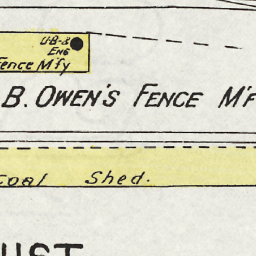 U-B-S
ENG
Fence M'f'y
B. OWEN'S FENCE M'F
Coal Shed.